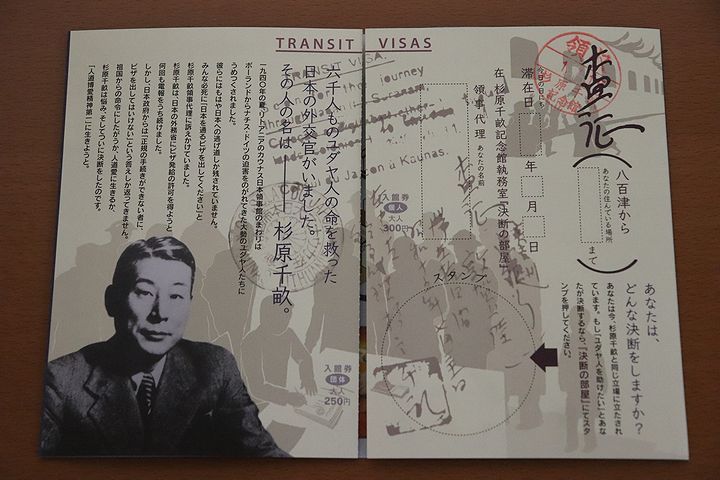 TRANSIT VISAS
六千人ものユダヤ人の命を救った
日本の外交官がいました。
その人の名は——杉原千畝。
一九四〇年の夏、リトアニアのカウナス日本領事館のまわりは
ポーランドからナチス・ドイツの迫害をのがれてきた大勢のユダヤ人たちに
うめつくされました。
彼らにはもはや日本への逃げ道しか残されていません。
みんな必死に「日本を通るビザを出してください」と
杉原千畝領事代理に訴えかけていました。
杉原千畝は、日本の外務省にビザ発給の許可を得ようと
何回も電報をうち続けました。
しかし、日本政府からは「正規の手続きができない者に、
ビザを出してはいけない」という答えしか返ってきません。
祖国からの命令にしたがうか、人道愛に生きるか、
杉原千畝は悩み、そしてついに決断をしたのです。
「人道博愛精神第一」に生きようと。
入館券
団体
大人
250円
査証
八百津から
あなたの住んでいる場所
まで
今日の日にち
滞在日
年 月 日
在 杉原千畝記念館執務室『決断の部屋』
領事代理
あなたの名前
入館券
個人
大人
300円
スタンプ
あなたは、
どんな決断をしますか?
あなたは今、杉原千畝と同じ立場に立たされ
ています。もし「ユダヤ人を助けたい」とあな
たが決断するなら、『決断の部屋』にてスタ
ンプを押してください。
TRANSIT VISA.
journey
Suranam
Kaunas.